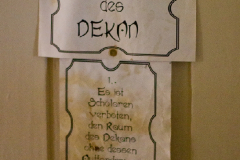 des
DEKAN
1.
Es ist
Scholaren
verboten,
den Raum
des Dekans
ohne dessen